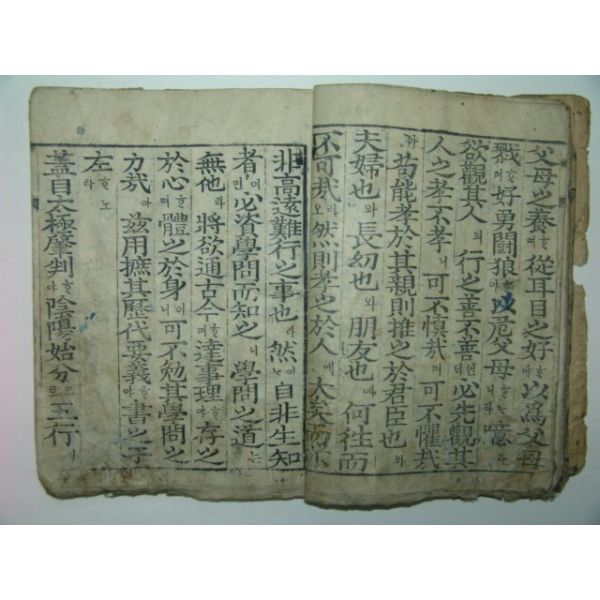 父母之養ᄒᆞ며從耳目之好ᄒᆞ야以爲父母
戮ᄒᆞ며好勇鬪狼ᄒᆞ야以危父母ᄒᆞᄂᆞ니라噫라
欲觀其人의行之善不善인댄必先觀其
人之孝不孝니可不愼哉며可不懼哉
苟能孝於其親則推之於君臣也와
夫婦也와長幼也와朋友也에何往而
不可哉리오然則孝之於人에大矣而亦
非高遠難行之事也라然이나自非生知
者ㅣ면必資學問而知之니學問之道ᄂᆞᆫ
無他ㅣ라將欲通古今ᄒᆞ며達事理ᄒᆞ야存之
於心ᄒᆞ며體之於身이니可不勉其學問之
力哉아玆用摭其歷代要義ᄒᆞ야書之于
左ᄒᆞ노라
蓋自太極肇判ᄒᆞ야陰陽始分으로五行